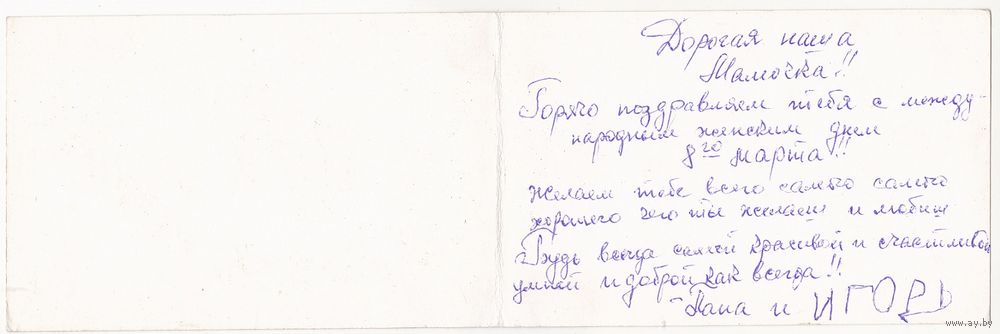 Дорогая наша
Мамочка!!
Горячо поздравляем тебя с между-
народным женским днем
8го марта!!
Желаем тебе всего самого самого
хорошего чего ты желаеш и любиш
Будь всегда самой красивой и счастливой
умной и доброй как всегда!!
Папа и ИГОРЬ
www.ay.by